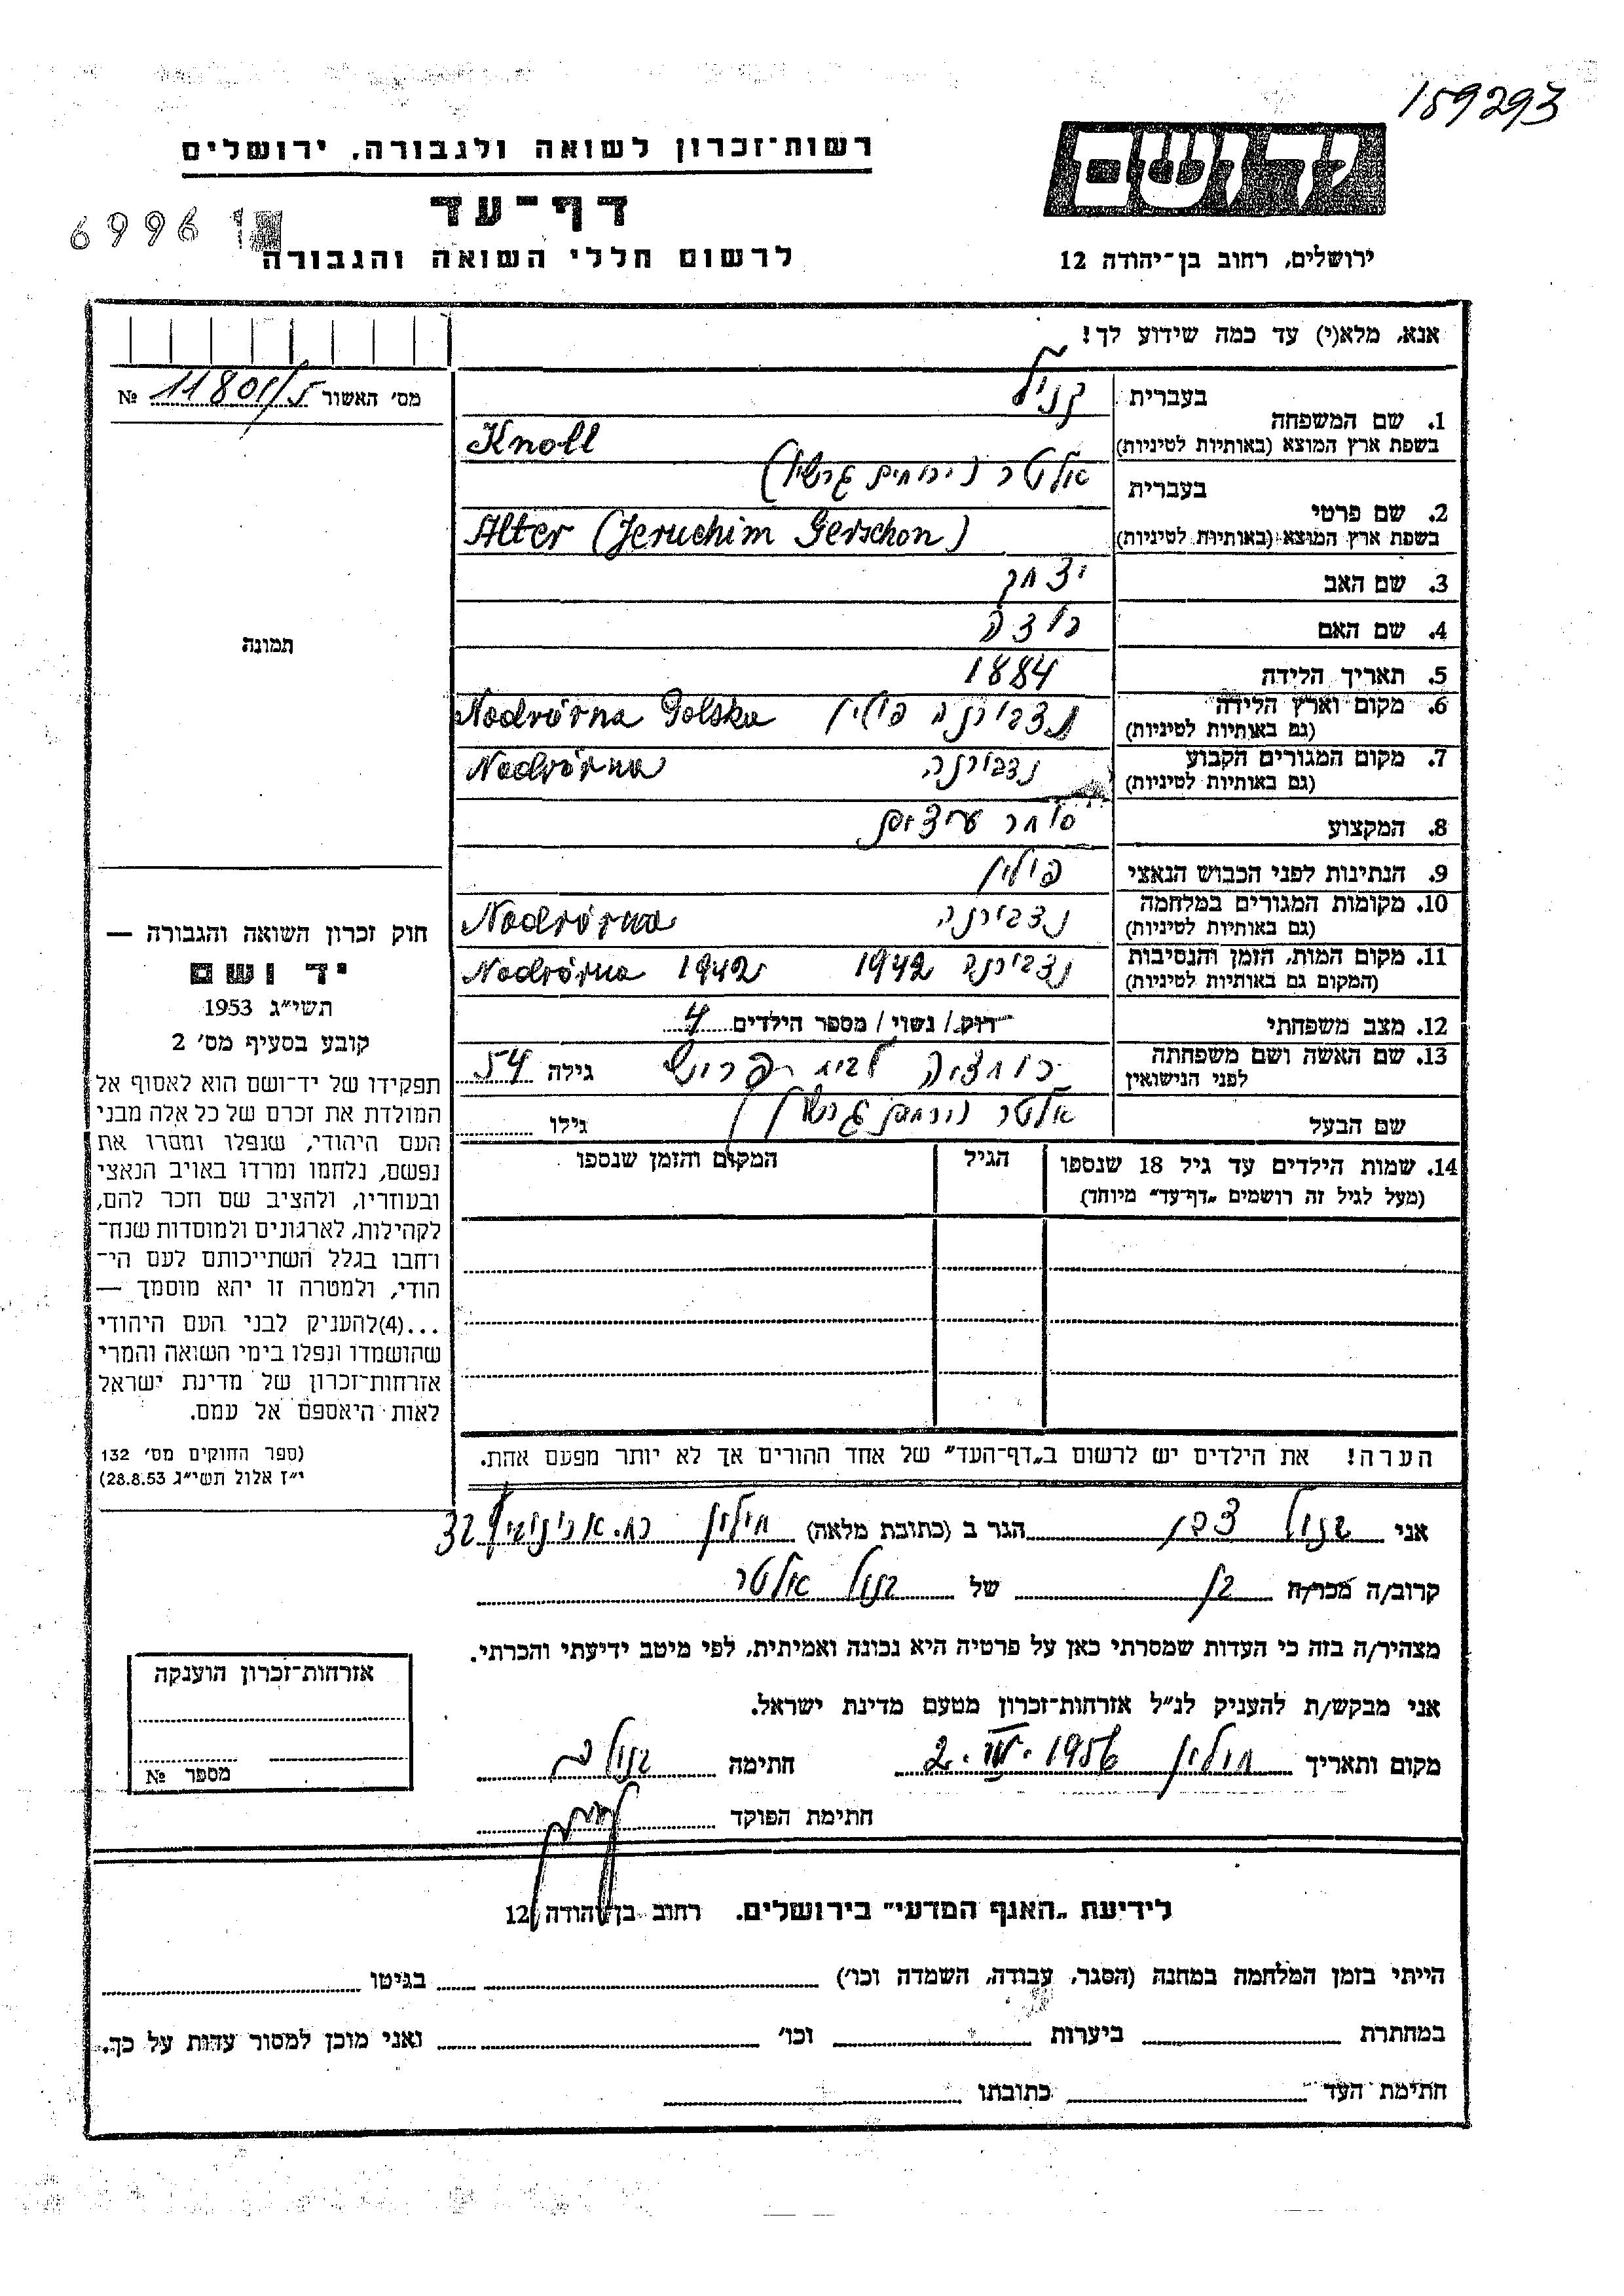 159293
רשות־זכרון לשואה ולגבורה, ירושלים
דף־עד
לרשום חללי השואה והגבורה
69961
יד ושם
ירושלים, רחוב בן־יהודה 12
אנא, מלא(י) עד כמה שידוע לך!
מס׳ האשור № 11801/5
1. שם המשפחה
בעברית
בשפת ארץ המוצא (באותיות לטיניות) Knoll
2. שם פרטי
בעברית אלטר (ירוחים גרשון)
בשפת ארץ המוצא (באותיות לטיניות) Alter (Jeruchim Gerschon)
3. שם האב יצחק
4. שם האם
5. תאריך הלידה 1884
6. מקום וארץ הלידה נדבורנה פולין Nadvórna Polska
(גם באותיות לטיניות)
7. מקום המגורים הקבוע נדבורנה Nadvórna
(גם באותיות לטיניות)
8. המקצוע סוחר עיצים
9. הנתינות לפני הכבוש הנאצי פולין
10. מקומות המגורים במלחמה נדבורנה Nadvórna
(גם באותיות לטיניות)
11. מקום המות, הזמן והנסיבות נדבורנה 1942 Nadvórna 1942
(המקום גם באותיות לטיניות)
12. מצב משפחתי רווק / נשוי / מספר הילדים 4
13. שם האשה ושם משפחתה לבית גילה 54
לפני הנישואין
שם הבעל אלטר (ירוחים גרשון) גילו
14. שמות הילדים עד גיל 18 שנספו
(מעל לגיל זה רושמים „דף־עד” מיוחד)
הגיל
המקום והזמן שנספו
הערה! את הילדים יש לרשום ב„דף־העד” של אחד ההורים אך לא יותר מפעם אחת.
תמונה
חוק זכרון השואה והגבורה —
יד ושם
תשי״ג 1953
קובע בסעיף מס׳ 2
תפקידו של יד־ושם הוא לאסוף אל
המולדת את זכרם של כל אלה מבני
העם היהודי, שנפלו ומסרו את
נפשם, נלחמו ומרדו באויב הנאצי
ובעוזריו, ולהציב שם וזכר להם,
לקהילות, לארגונים ולמוסדות שנח־
רבו בגלל השתייכותם לעם הי־
הודי, ולמטרה זו יהא מוסמך —
...(4)להעניק לבני העם היהודי
שהושמדו ונפלו בימי השואה והמרי
אזרחות־זכרון של מדינת ישראל
לאות היאספם אל עמם.
(ספר החוקים מס׳ 132
י״ז אלול תשי״ג 28.8.53)
אני קנול צבי הגר ב (כתובת מלאה) חולון 32
קרוב/ה מכר/ה בן של קנול אלטר
מצהיר/ה בזה כי העדות שמסרתי כאן על פרטיה היא נכונה ואמיתית, לפי מיטב ידיעתי והכרתי.
אני מבקש/ת להעניק לנ״ל אזרחות־זכרון מטעם מדינת ישראל.
מקום ותאריך חולון 1956 חתימה
חתימת הפוקד
אזרחות־זכרון הוענקה
מספר №
לידיעת „האגף המדעי” בירושלים. רחוב בן יהודה 12
הייתי בזמן המלחמה במחנה (הסגר, עבודה, השמדה וכו׳) בגיטו
במחתרת ביערות וכו׳ ואני מוכן למסור עדות על כך.
חתימת העד כתובתו